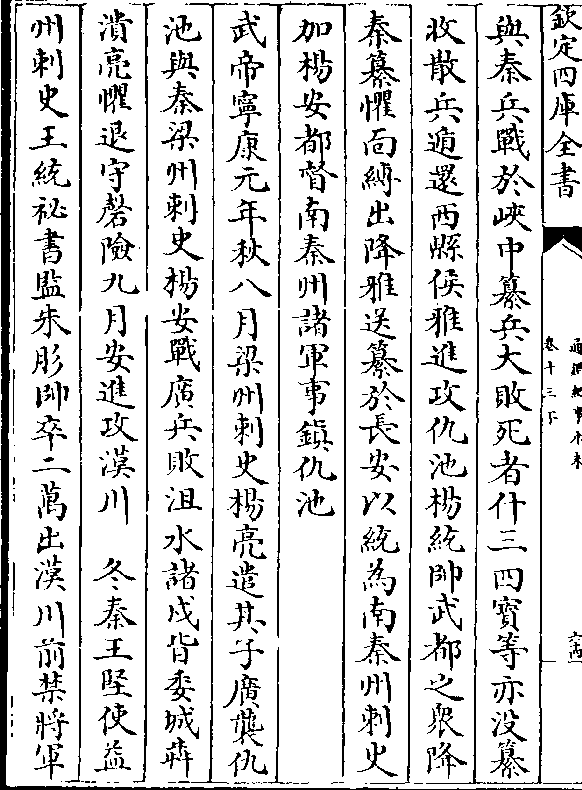 欽定四庫全書
通鑑紀事本末
卷十三下
六四
與秦兵戰於峽中纂兵大敗死者什三四寳等亦没纂
收散兵遁還西縣侯雅進攻仇池楊統帥武都之衆降
秦纂懼面縛出降雅送纂於長安以統為南秦州刺史
加楊安都督南秦州諸軍事鎮仇池
武帝寧康元年秋八月梁州刺史楊亮遣其子廣襲仇
池與秦梁州刺史楊安戰廣兵敗沮水諸戍皆委城犇
潰亮懼退守磬險九月安進攻漢川　冬秦王堅使益
州刺史王統祕書監朱肜帥卒二萬出漢川前禁將軍